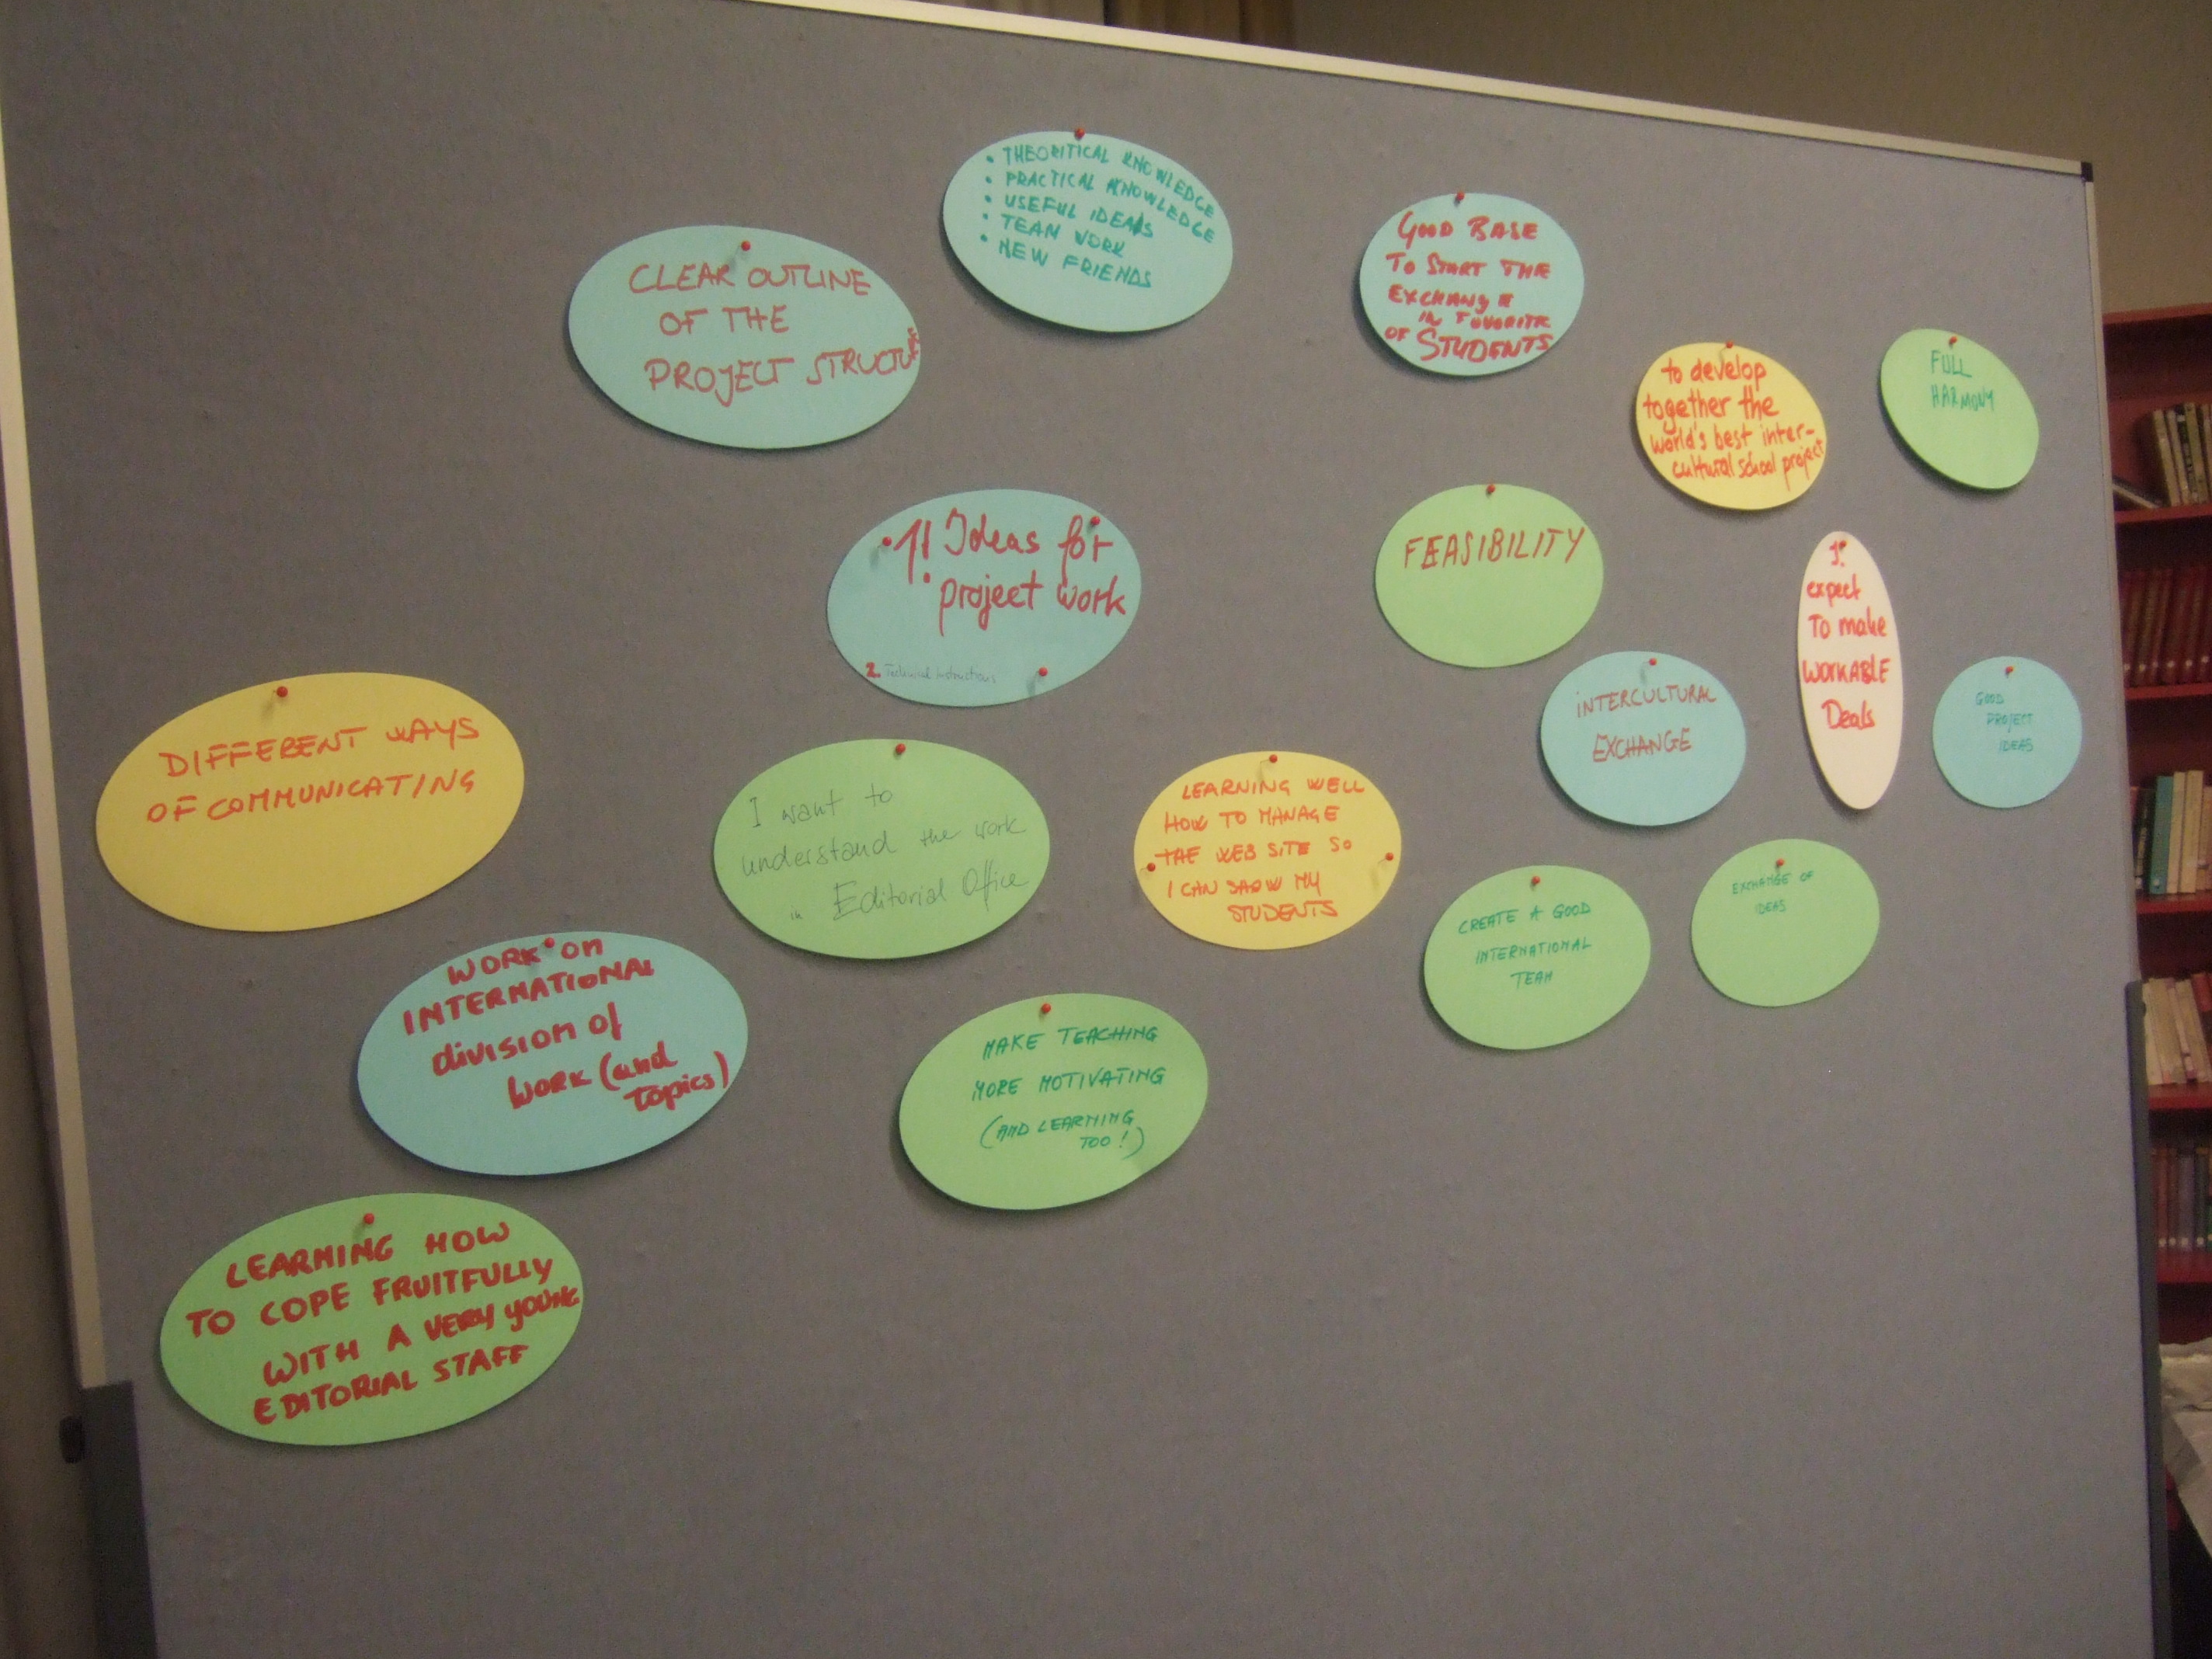 • THEORITICAL KNOWLEDGE
• PRACTICAL KNOWLEDGE
• USEFUL IDEAS
• TEAM WORK
• NEW FRIENDS
CLEAR OUTLINE
OF THE
PROJECT STRUCTURE
GOOD BASE
TO START THE
EXCHANGE
IN FAVORITE
OF STUDENTS
to develop
together the
world's best inter-
cultural school project
FULL
HARMONY
1! Ideas for
project work
2. Technical Instructions
FEASIBILITY
I
expect
To make
WORKABLE
Deals
INTERCULTURAL
EXCHANGE
GOOD
PROJECT
IDEAS
DIFFERENT WAYS
OF COMMUNICATING
I want to
understand the work
in Editorial Office
LEARNING WELL
HOW TO MANAGE
THE WEB SITE SO
I CAN SHOW MY
STUDENTS
CREATE A GOOD
INTERNATIONAL
TEAM
EXCHANGE OF
IDEAS
WORK ON
INTERNATIONAL
division of
WORK (and
topics)
MAKE TEACHING
MORE MOTIVATING
(AND LEARNING
TOO!)
LEARNING HOW
TO COPE FRUITFULLY
WITH A VERY YOUNG
EDITORIAL STAFF